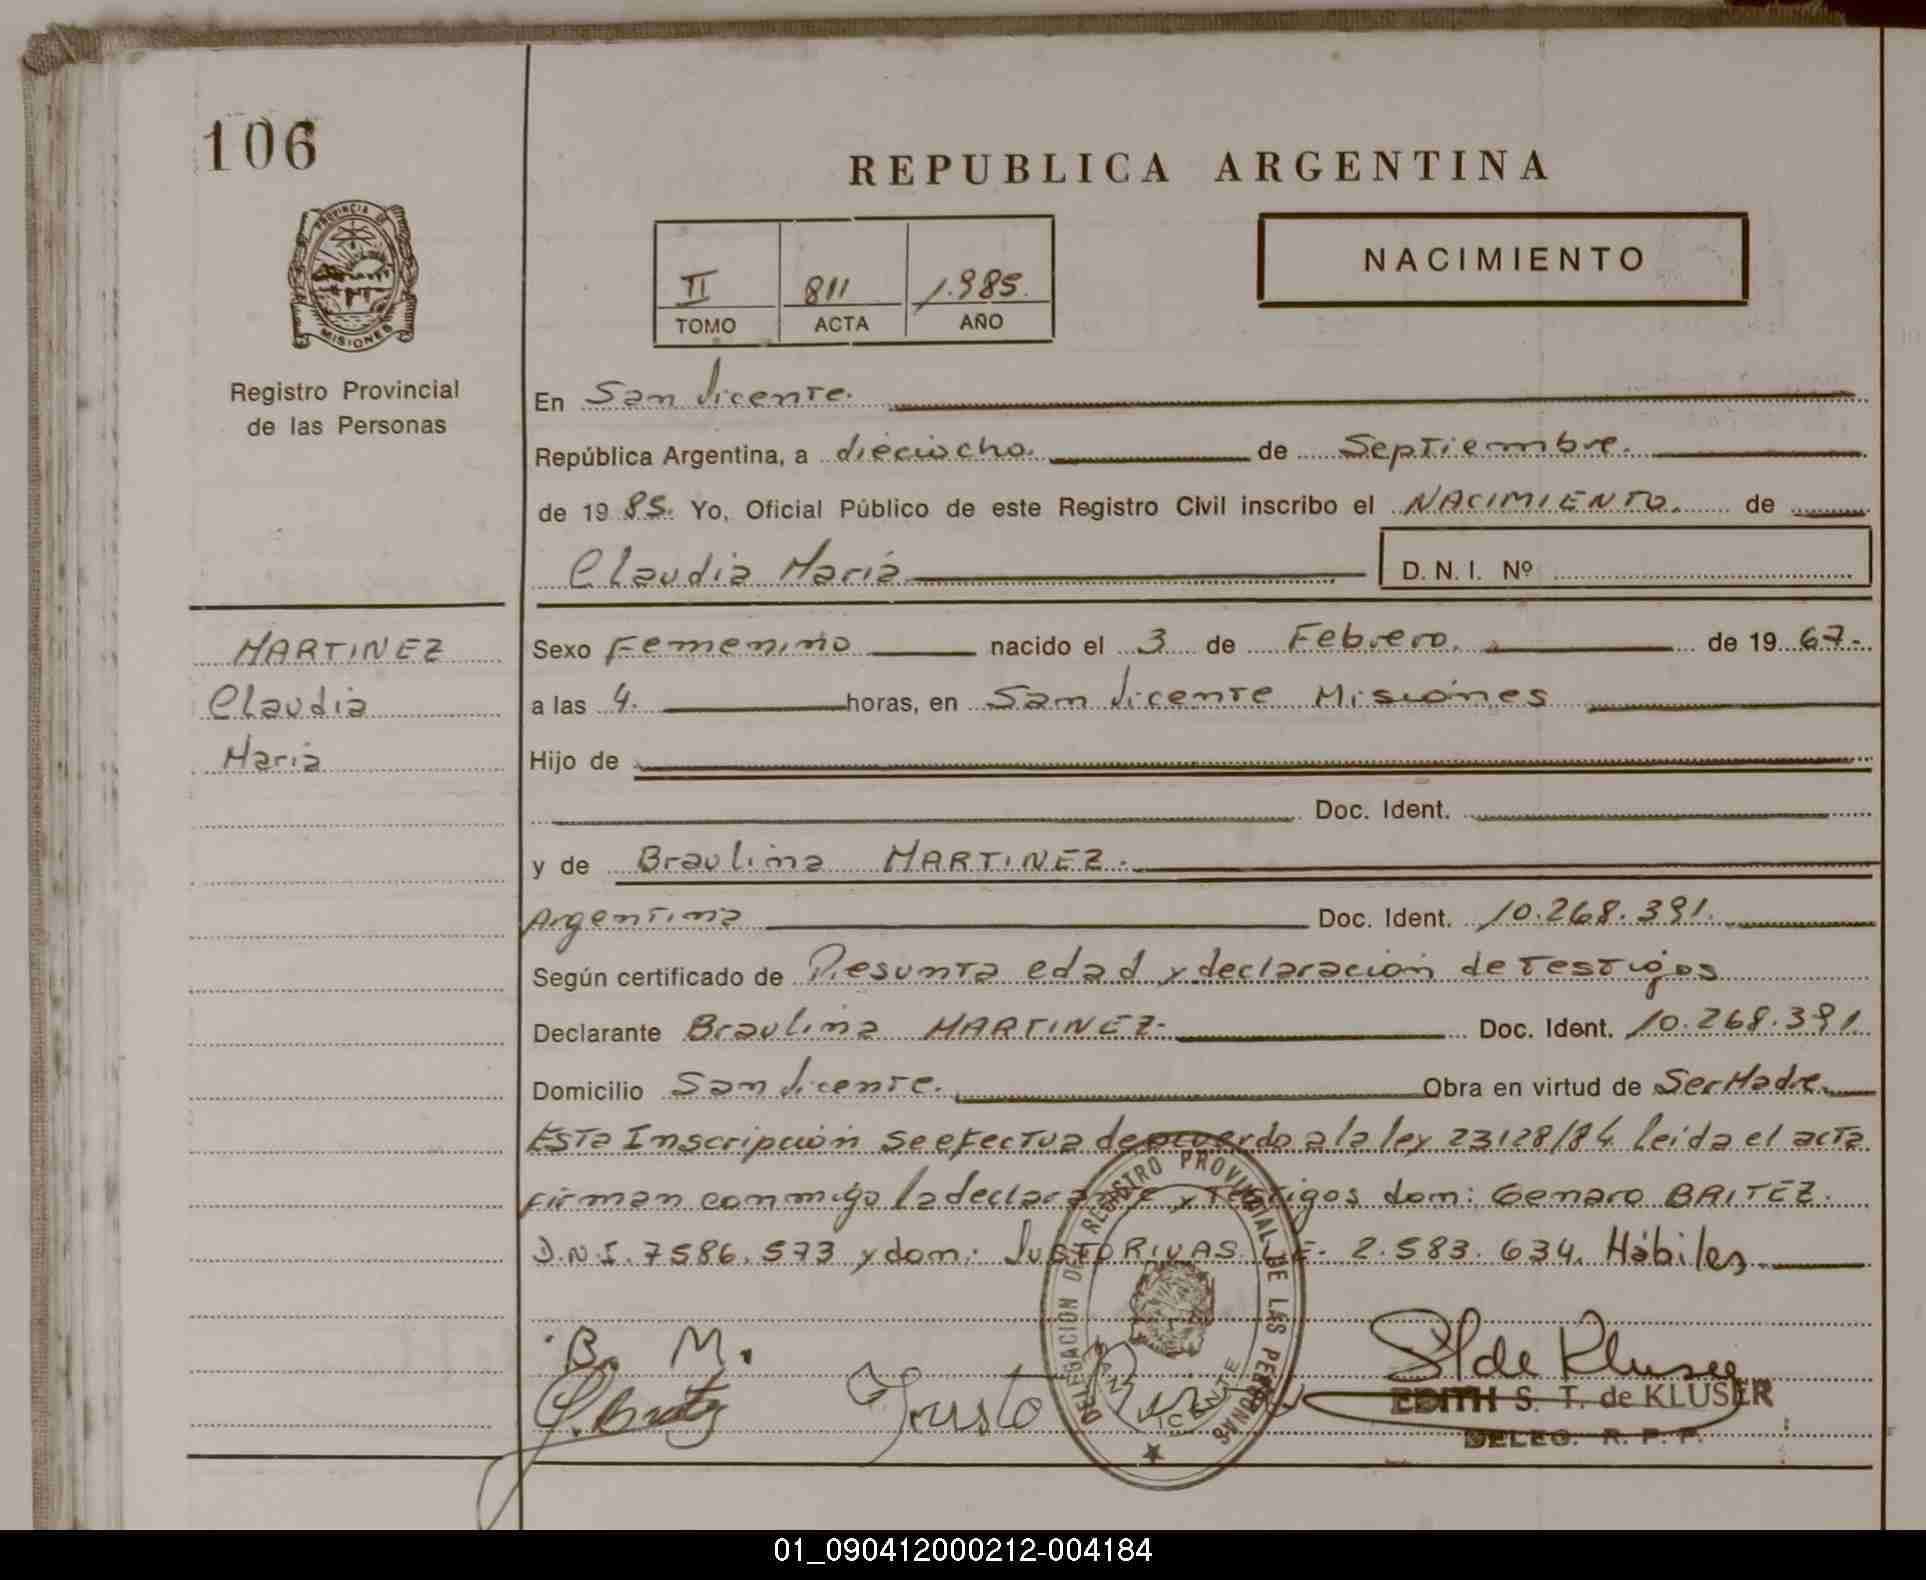 106
REPUBLICA ARGENTINA
PROVINCIA DE
MISIONES
NACIMIENTO
II 811 1.985.
TOMO ACTA AÑO
Registro Provincial
de las Personas
En San Vicente.
República Argentina, a dieciocho. de Septiembre.
de 19 85. Yo, Oficial Público de este Registro Civil inscribo el NACIMIENTO. de
Claudia María D. N. I. Nº
MARTINEZ
Claudia
María
Sexo Femenino nacido el 3 de Febrero. de 19 67.-
a las 4. horas, en San Vicente Misiones
Hijo de
Doc. Ident.
y de Braulina MARTINEZ.
Argentina Doc. Ident. 10.268.391.
Según certificado de Presunta edad y declaración de testigos
Declarante Braulina MARTINEZ- Doc. Ident. 10.268.391
Domicilio San Vicente. Obra en virtud de Ser Madre.
Esta Inscripción se efectua de acuerdo a la ley 23128/84 leída el acta
firman conmigo la declarante y testigos dom: Genaro BRITEZ.
D.N.I. 7586.573 y dom: Justo RIVAS L.E. 2.583.634. Hábiles
B. M.
G. Britez Justo Rivas
S T de Kluser
EDITH S. T. de KLUSER
DELEG. R. P. P.
DELEGACION DEL REGISTRO PROVINCIAL DE LAS PERSONAS
SAN VICENTE
01_090412000212-004184